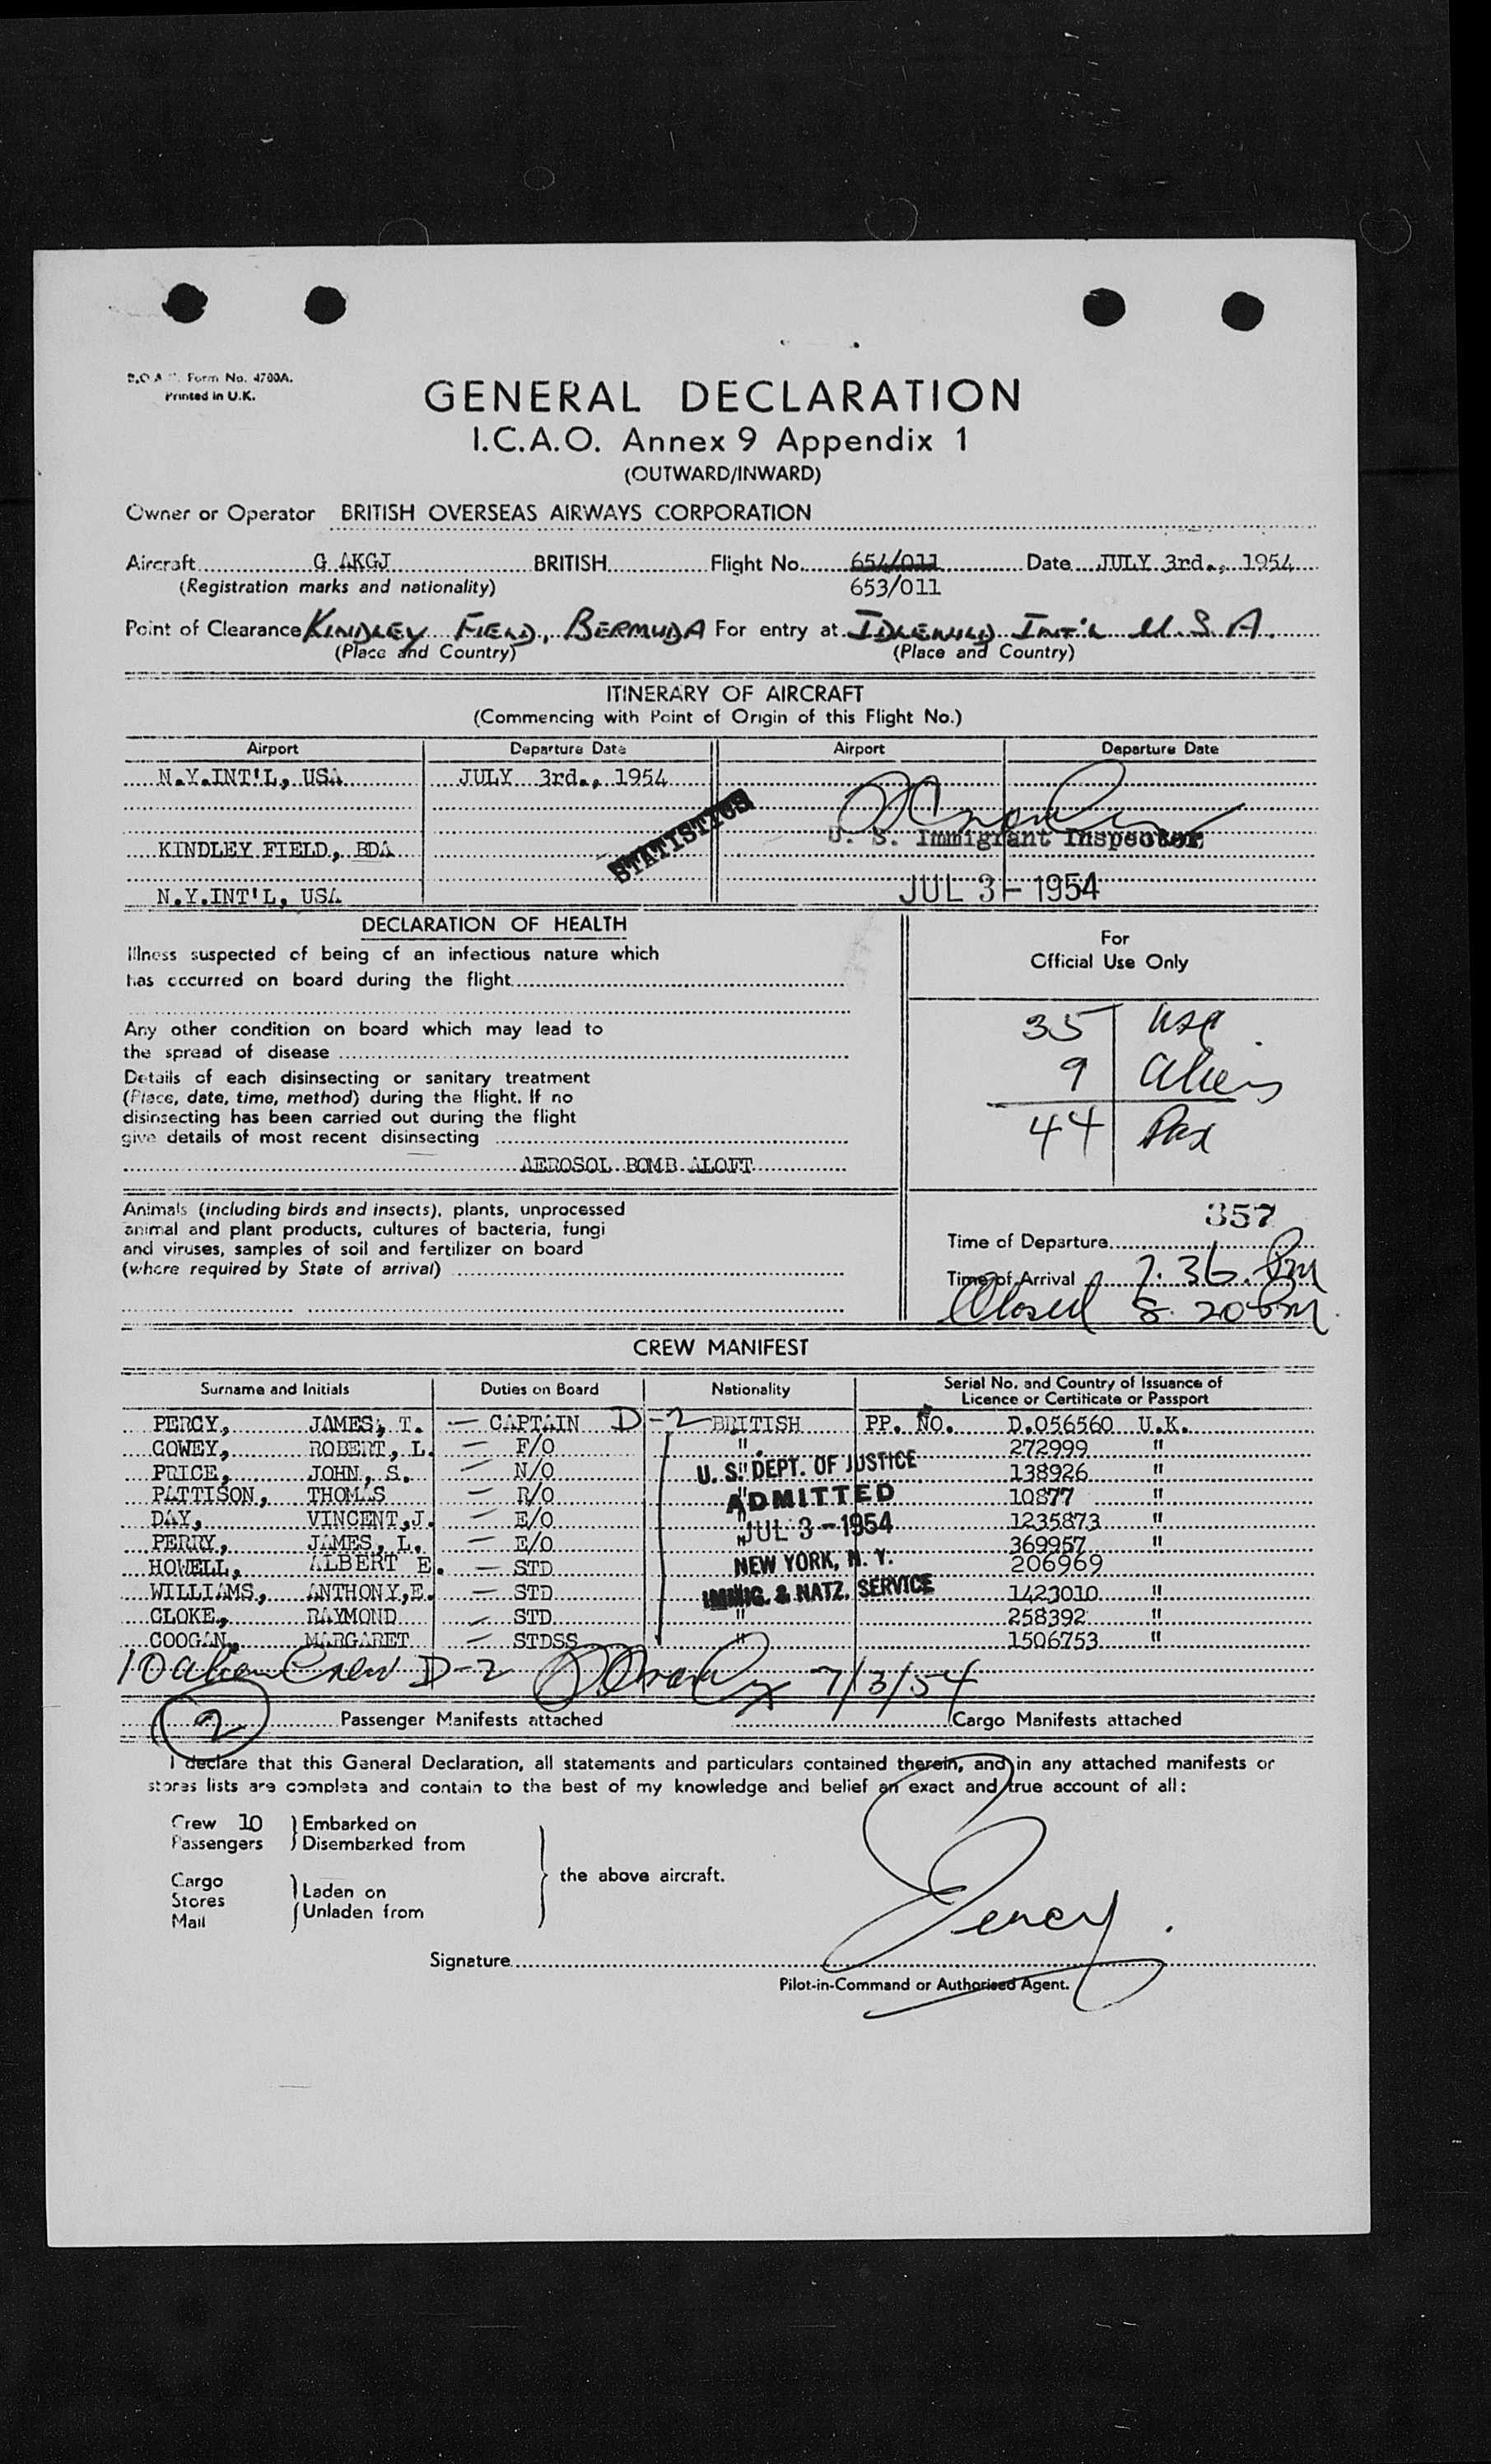 B.O.A.C. Form No. 4700A.
Printed in U.K.
GENERAL DECLARATION
I.C.A.O. Annex 9 Appendix 1
(OUTWARD/INWARD)
Owner or Operator BRITISH OVERSEAS AIRWAYS CORPORATION
Aircraft G AKGJ BRITISH Flight No. 654/011 Date JULY 3rd., 1954
(Registration marks and nationality) 653/011
Point of Clearance KINDLEY FIELD, BERMUDA For entry at IDLEWILD INT'L U.S.A.
(Place and Country) (Place and Country)
ITINERARY OF AIRCRAFT
(Commencing with Point of Origin of this Flight No.)
Airport Departure Date Airport Departure Date
N.Y.INT'L, USA JULY 3rd., 1954
STATISTICS
U. S. Immigrant Inspector
KINDLEY FIELD, BDA
JUL 3 - 1954
N.Y.INT'L, USA
DECLARATION OF HEALTH
For
Official Use Only
Illness suspected of being of an infectious nature which
has occurred on board during the flight
Any other condition on board which may lead to
the spread of disease
35 USC
9 Aliens
44 Pax
Details of each disinsecting or sanitary treatment
(Place, date, time, method) during the flight. If no
disinsecting has been carried out during the flight
give details of most recent disinsecting
AEROSOL BOMB ALOFT
Animals (including birds and insects), plants, unprocessed
animal and plant products, cultures of bacteria, fungi
and viruses, samples of soil and fertilizer on board
(where required by State of arrival)
357
Time of Departure
Time of Arrival 7.36 Pm
Closed 8.20 Pm
CREW MANIFEST
Surname and Initials Duties on Board Nationality Serial No. and Country of Issuance of
Licence or Certificate or Passport
PERCY, JAMES, T. — CAPTAIN D-2 BRITISH PP. NO. D.056560 U.K.
COWEY, ROBERT, L. — F/O " 272999 "
PRICE, JOHN, S. — N/O " 138926 "
PATTISON, THOMAS — R/O " 10877 "
DAY, VINCENT,J. — E/O " 1235873 "
PERRY, JAMES, L. — E/O " 369957 "
HOWELL, ALBERT E. — STD 206969
WILLIAMS, ANTHONY,E. — STD 1423010 "
CLOKE, RAYMOND — STD " 258392 "
COOGAN, MARGARET — STDSS " 1506753 "
U. S. DEPT. OF JUSTICE
ADMITTED
JUL 3 - 1954
NEW YORK, N. Y.
IMMIG. & NATZ. SERVICE
10 alien Crew D-2 7/3/54
2 Passenger Manifests attached Cargo Manifests attached
I declare that this General Declaration, all statements and particulars contained therein, and in any attached manifests or
stores lists are complete and contain to the best of my knowledge and belief an exact and true account of all:
Crew 10 Embarked on
Passengers Disembarked from
Cargo
Stores
Mail
Laden on
Unladen from
the above aircraft.
Percy
Signature
Pilot-in-Command or Authorised Agent.